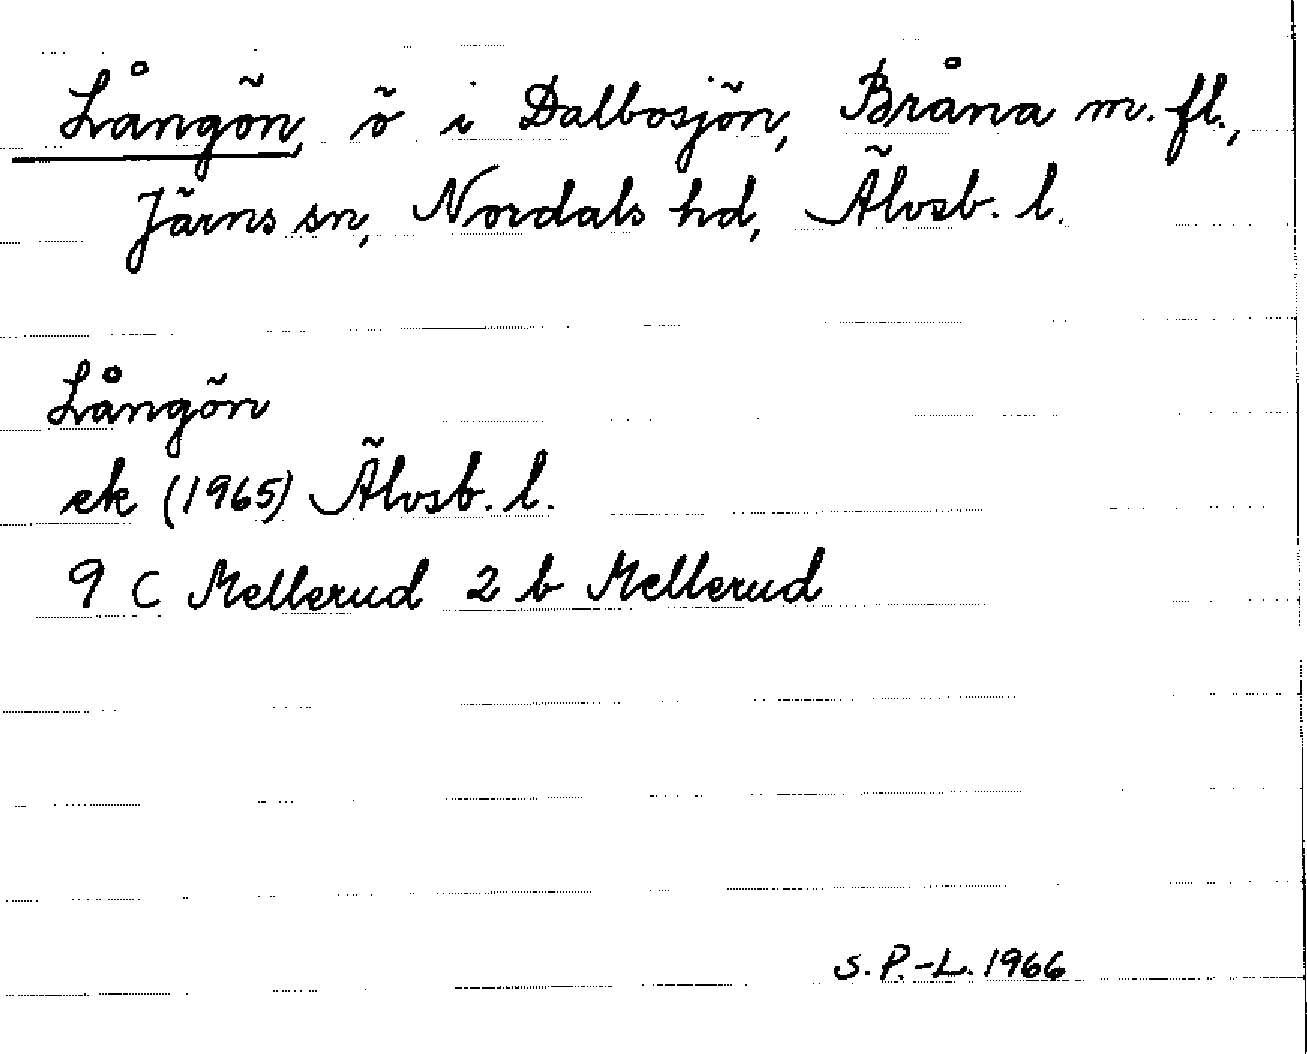 Långön, ö i Dalbosjön, Bråna m. fl.,
Järns sn, Nordals hd, Älvsb. l.
Långön
ek (1965) Älvsb. l.
9 C Mellerud 2 b Mellerud
S. P.-L. 1966